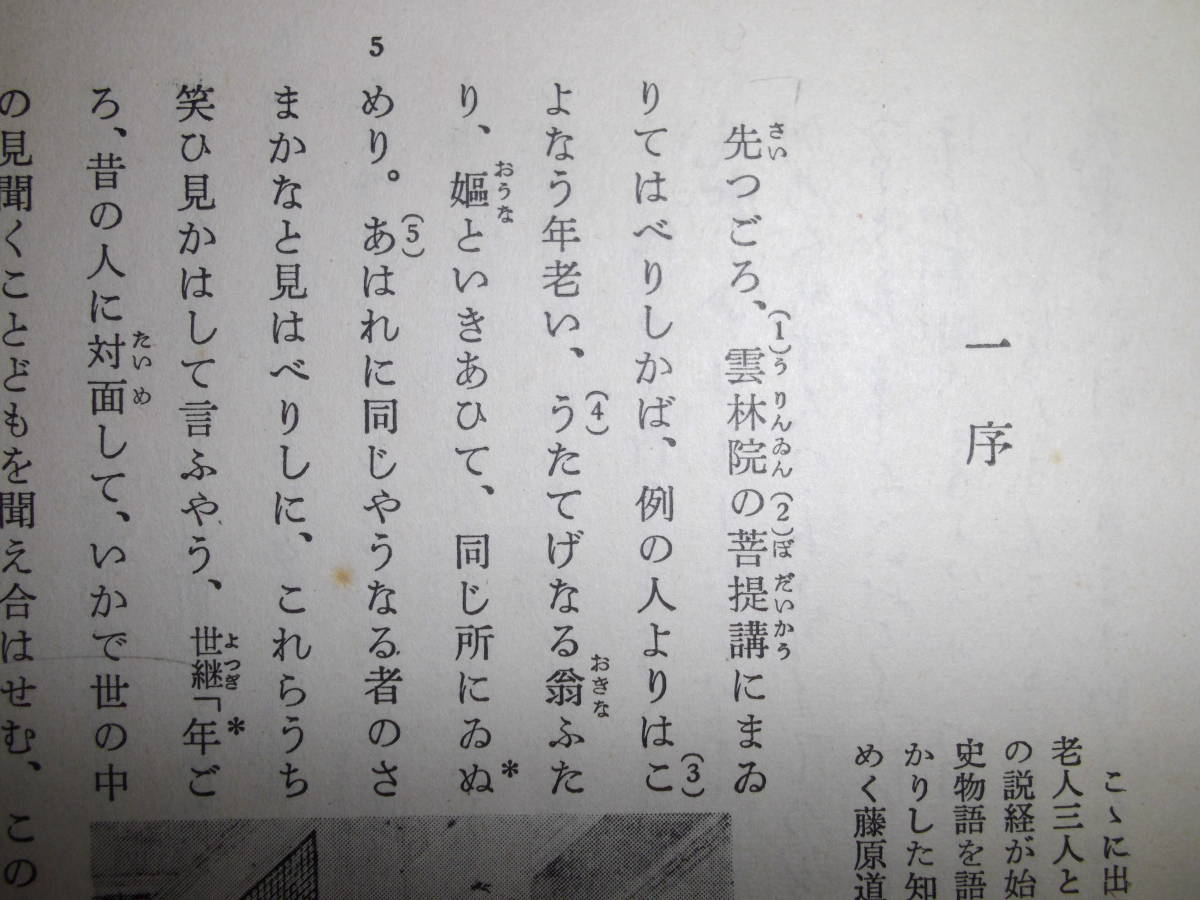 一　序
こゝに出
老人三人と
の説経が始
史物語を語
かりした知
めく藤原道
先つごろ、(1)雲林院の(2)菩提講にまゐ
りてはべりしかば、例の人よりはこ(3)
よなう年老い、(4)うたてげなる翁ふた
り、嫗といきあひて、同じ所にゐぬ*
5
めり。(5)あはれに同じやうなる者のさ
まかなと見はべりしに、これらうち
笑ひ見かはして言ふやう、世継「年*ご
ろ、昔の人に対面して、いかで世の中
の見聞くことどもを聞え合はせむ、この
さい
うりんゐん
ぼだいかう
おきな
おうな
よつぎ
たいめ